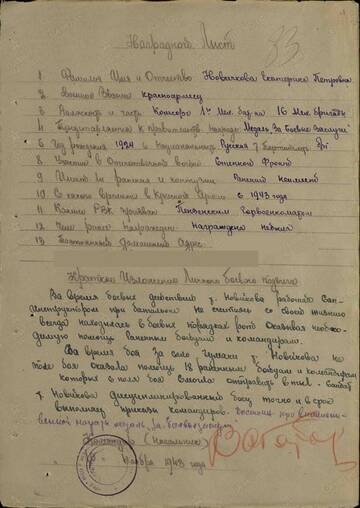 Наградной Лист
33
1 Фамилия Имя и Отчество Новичкова Екатерина Петровна
2 Военное Звание красноармеец
3 Должность и часть 1го Мех. бат-на 16 Мех. бригады
4 Представляется к правительств. награде Медаль За Боевые Заслуги
6 Год рождения 1924 Национальность Русская 7 Партийность
8 Участие в Отечественной войне Степной Фронт
9 Имеет ли ранения и контузии Ранений не имеет
10 С какого времени в Красной Армии с 1943 года
11 Каким РВК призван Пензенским Горвоенкоматом
12 Чем ранее награжден награждений не имела
13 Постоянный домашний адрес
Краткое Изложение Личного боевого подвига
Во время боевых действий т. Новичкова работая Сан-
Инструктором при батальоне не считаясь со своей жизнью
всегда находилась в боевых порядках рот оказывая необхо-
димую помощь раненым бойцам и командирам.
Во время боя за село т. Новичкова на
поле боя оказала помощь 18 раненым бойцам и командирам
которых с поля боя сумела отправить в тыл.
т. Новичкова дисциплинированный боец точно и в срок
выполняет приказы командиров. Достойна
медаль за боевые заслуги
Командир (начальник)
Ноября 1943 года